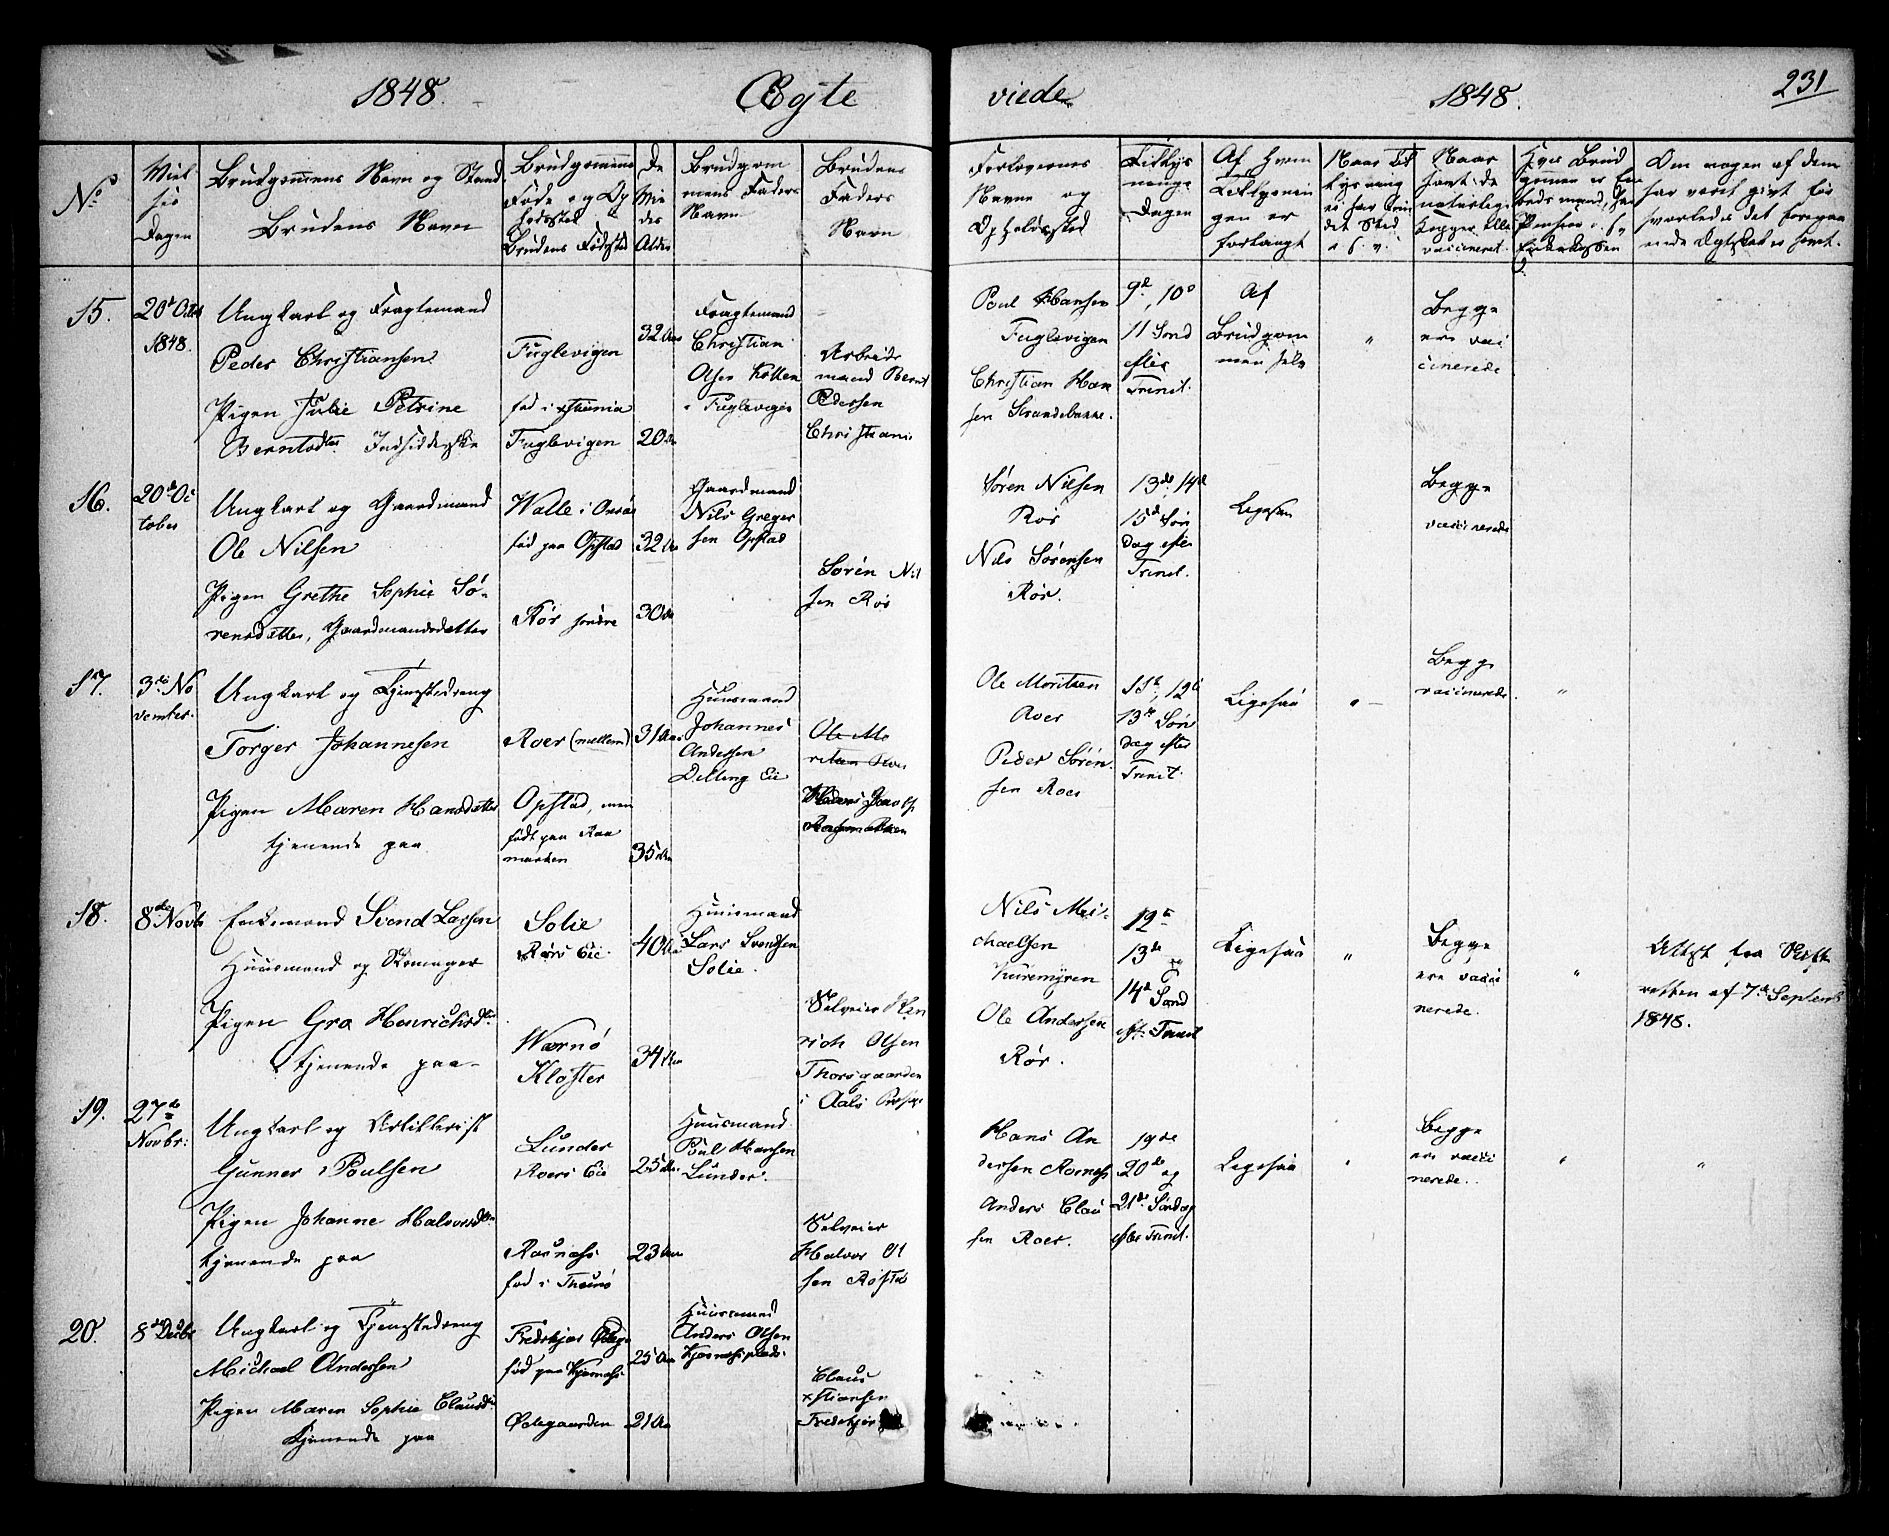 1848.
Ægte
viede
1848.
231
No
Viel
ses
Dagen
Brudgommens Navn og Stand
Brudens Navn
Brudgommens
Føde og Op
holdssted
Brudens Fødested
De
Vie
des
Alder
Brudgom
mens Faders
Navn
Brudens
Faders
Navn
Forlovernes
Navne og
Opholdssted
Tillys
nings
Dagen
Af hvem
Lysnin
gen er
forlangt
Naar
Om nogen af dem
har været gift før
hvorledes det foregaa
ende Ægteskab er hævet.
15.
20de Octbr
1848.
Ungkarl og Fragtemand
Peder Christiansen
Pigen Julie Petrine
Berntsdtr. Indsidderske
Fuglevigen
fød i Xstiania
Fuglevigen
32 Aar
20 Aar
Fragtemand
Christian
Olsen Kolken
i Fuglevigen
Arbeids
mand Bernt
Pedersen
Christiania
Poul Hansen
Fuglevigen
Christian Han
sen Strandebakke.
9de, 10de
11 Sønd
efter
Trinit.
Af
Brudgom
men selv
"
Begge
ere vac
cinerede
16.
20de Oc
tober
Ungkarl og Gaardmand
Ole Nilsen
Pigen Grethe Sophie Sø-
rensdatter, Gaardmandsdatter
Walle i Onsø
fød paa Opstad
Rör søndre
32 Aar
30 Aar
Gaardmand
Nils Greger
sen Opstad
Søren Nil
sen Rör
Søren Nilsen
Rör
Nils Sørensen
Rör.
13de, 14de
15de Søn
dag efter
Trinit.
Ligesaa
Begge
vaccinerede
17.
3die No
vember.
Ungkarl og Tjenestedreng
Torger Johannesen
Pigen Maren Hansdatter
tjenende paa
Roer (mellem)
Opstad, men
født paa Raa
marken
31 Aar
35 Aar
Huusmand
Johannes
Andersen
Dilling Eie
Ole Mo
ritzen Roer
Ole Moritzen
Roer
Peder Søren
sen Roer
11te, 12te
13de Søn
dag efter
Trinit.
Ligesaa
"
Begge
vaccinerede.
"
18.
8de Novbr
Enkemand Svend Larsen
Huusmand og Skomager
Pigen Gro Henrichsdtr.
tjenende paa
Solie
Rörs Eie.
Wærnø
Kloster
40 Aar
34 Aar
Huusmand
Lars Svendsen
Solie.
Selveier Hen
rich Olsen
Thorsgaarden
i Aals Præstg
Nils Mi-
chaelsen
Kuremyren
Ole Andersen
Rör.
12te
13de og
14de Sønd
eft. Trinit
Ligesaa
"
Begge
ere vacci
nerede.
"
Attest fra Skifte
retten af 7de Septemb
1848.
19.
27de
Novbr:
Ungkarl og Artillerist
Gunner Poulsen
Pigen Johanne Halvorsdtr
tjenende paa
Lunder
Roers Eie
Rosnæs
fød i Thesnø
25 Aar
23 Aar
Huusmand
Poul Hansen
Lunder.
Selveier
Halvor Ol
sen
Hans An
dersen Rosnæs
Anders Clau
sen Roer.
19de
20de og
21de Søndag
efter Trinit.
Ligesaa
"
Begge
ere vacci
nerede.
"
"
20.
8de Decbr
Ungkarl og Tjenestedreng
Michael Andersen
Pigen Maren Sophie Clausdtr
tjenende paa
Fredskjær
fød paa Kjærnæs
Ødegaarden
25 Aar
21 Aar
Huusmand
Anders Olsen
Kjærnæsplads.
Claus
Xstiansen
Fredskjær